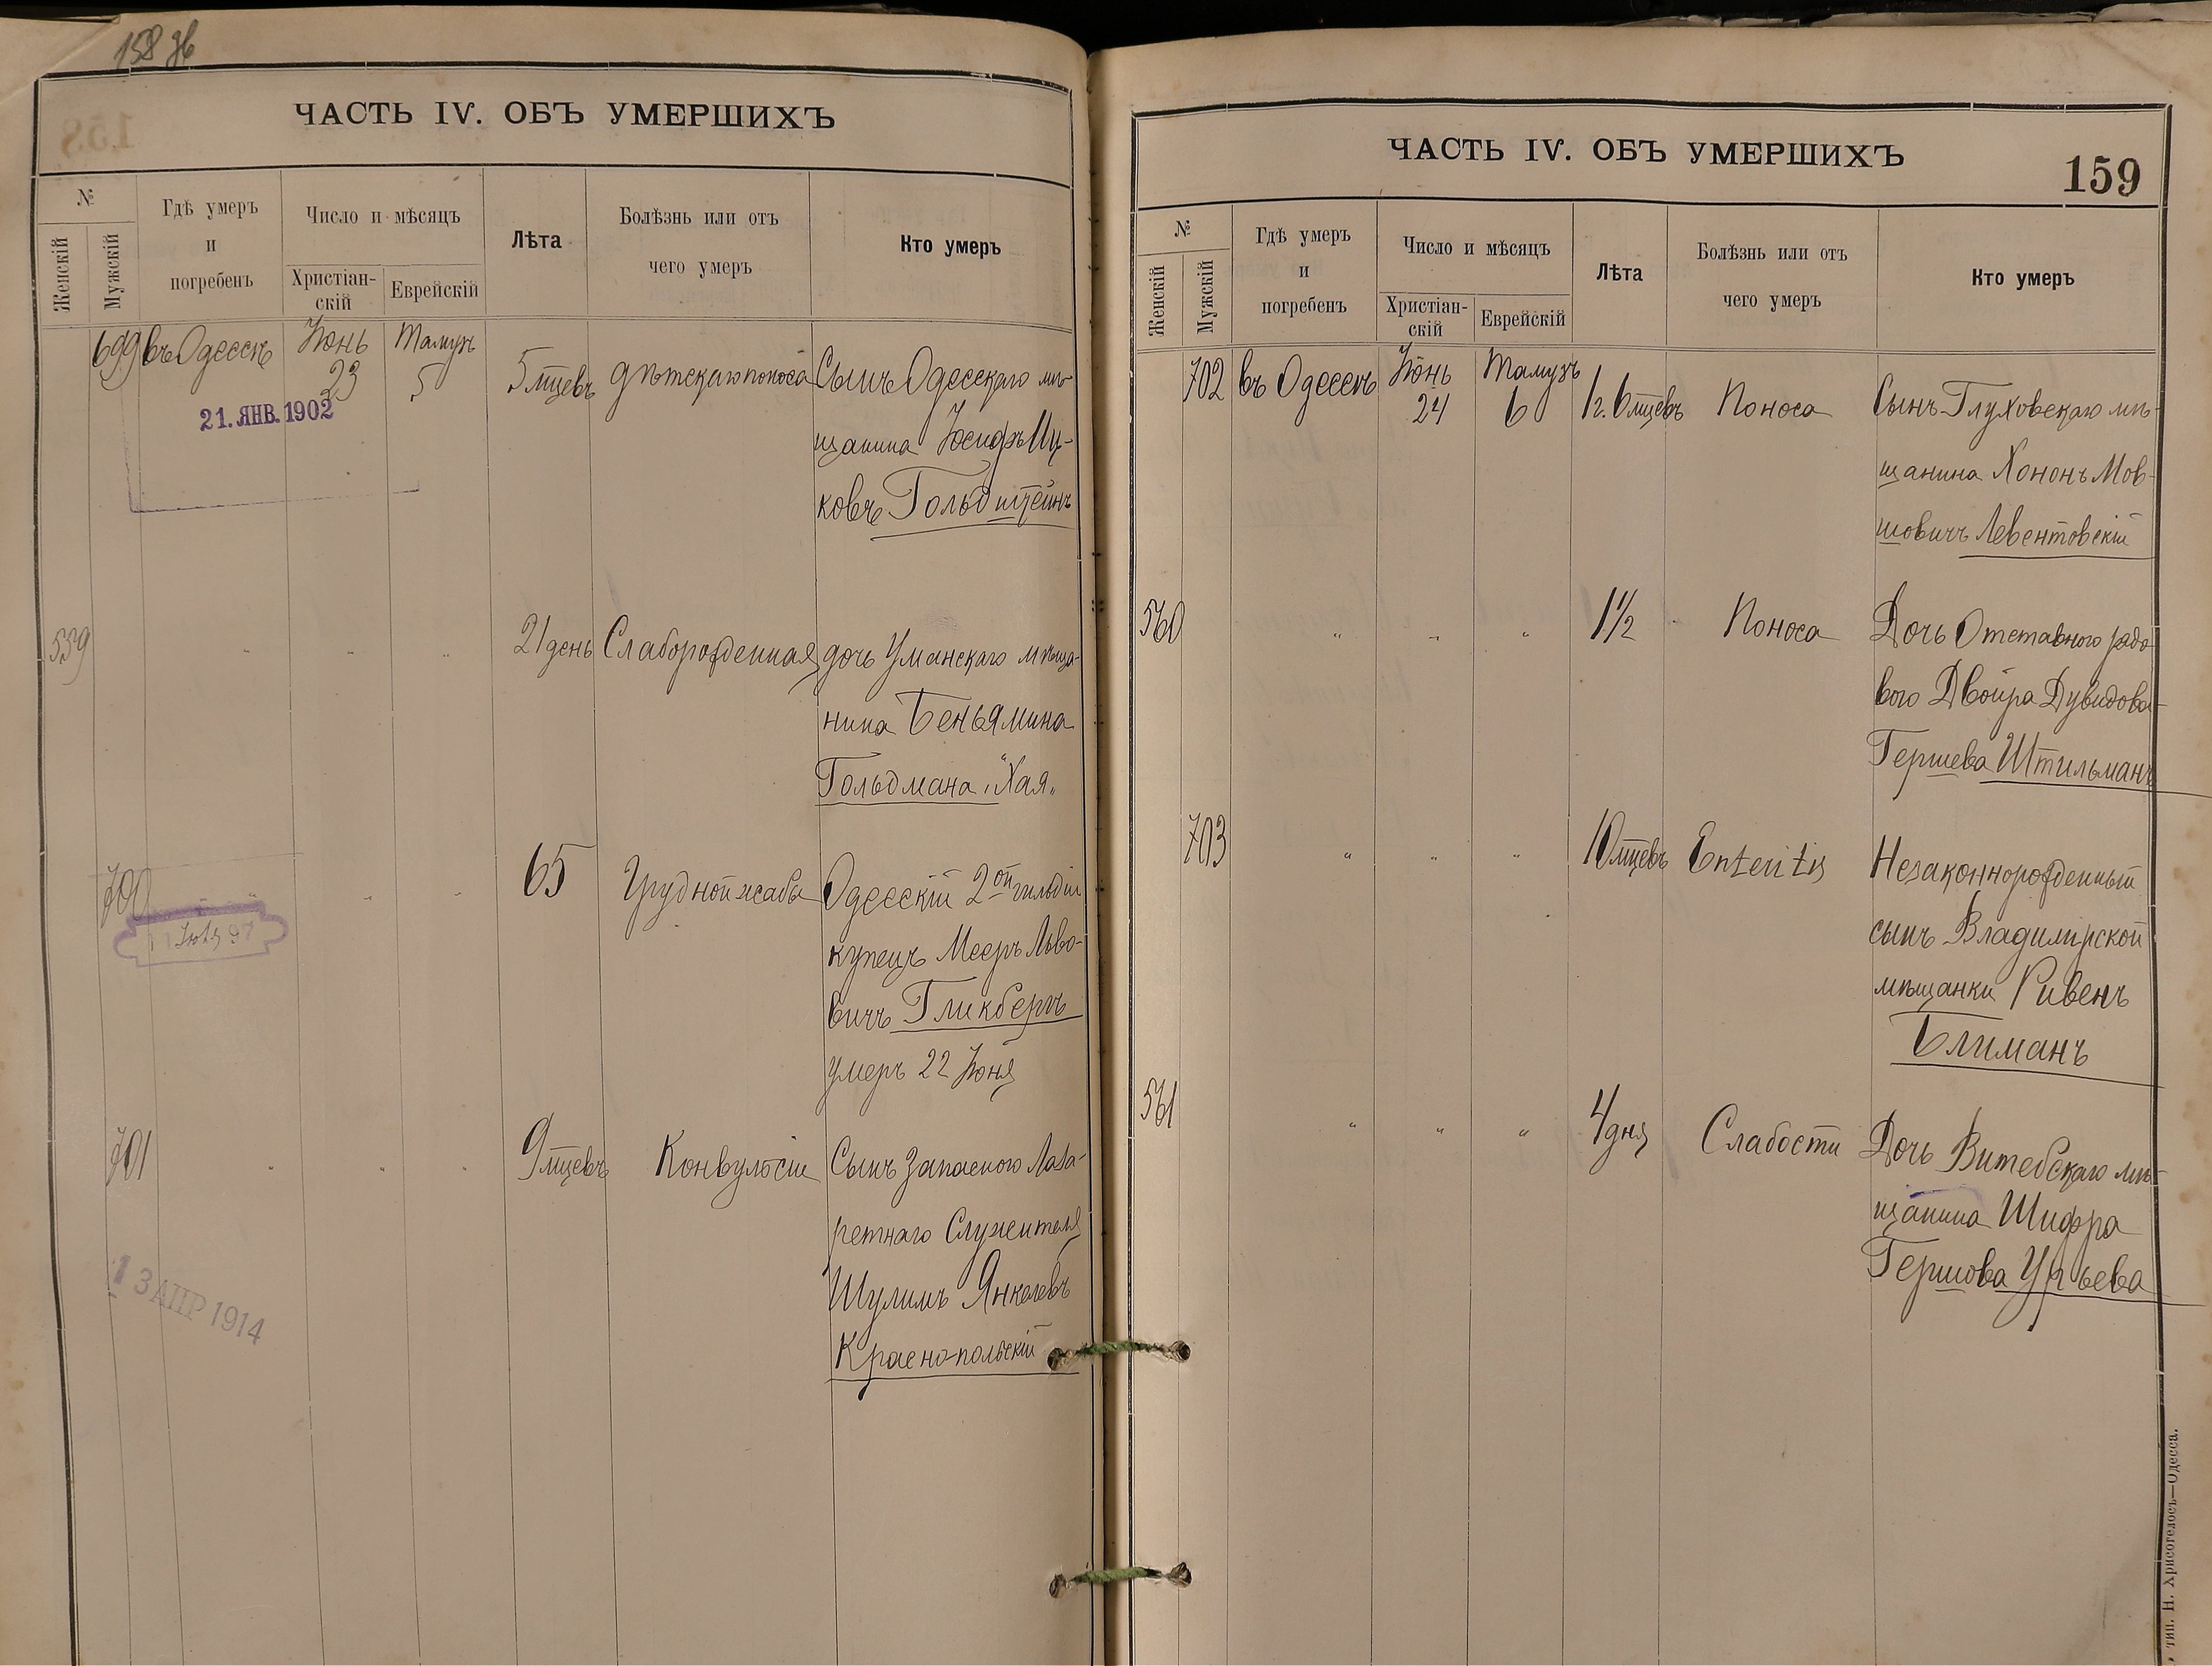 158 об
ЧАСТЬ IV. ОБЪ УМЕРШИХЪ
№
Женскій
Мужскій
Гдѣ умеръ
и
погребенъ
Число и мѣсяцъ
Христіан-
скій
Еврейскій
Лѣта
Болѣзнь или отъ
чего умеръ
Кто умеръ
699 въ Одессѣ Іюнь 23 Тамузъ 5 5 мцевъ дѣтскаго поноса Сынъ Одесскаго мѣ-
щанина Іосифъ Иц-
ковъ Гольдштейнъ
21. ЯНВ. 1902
559 " " " 21 день Слаборожденная дочь Уманскаго мѣща-
нина Беньямина
Гольдмана "Хая"
700 " " " 65 Грудной жабы Одесскій 2ой гильдіи
купецъ Мееръ Льво-
вичъ Гликбергъ
умеръ 22 Іюня
701 " " " 9 мцевъ Конвульсіи Сынъ запаснаго Лаза-
ретнаго Служителя
Шулимъ Янкелевъ
Красно-польскій
13 АПР 1914
ЧАСТЬ IV. ОБЪ УМЕРШИХЪ
159
№
Женскій
Мужскій
Гдѣ умеръ
и
погребенъ
Число и мѣсяцъ
Христіан-
скій
Еврейскій
Лѣта
Болѣзнь или отъ
чего умеръ
Кто умеръ
702 въ Одессѣ Іюнь 24 Тамузъ 6 1 г. 6 мцевъ Поноса Сынъ Глуховскаго мѣ-
щанина Хононъ Мов-
шовичъ Левентовскій
560 " " " 1 1/2 Поноса Дочь Отставного рядо-
вого Двойра Дувидова-
Гершева Штильманъ
703 " " " 10 мцевъ Enteritis Незаконнорожденный
сынъ Владимірской
мѣщанки Ривенъ
Блиманъ
561 " " " 4 дня Слабости Дочь Витебскаго мѣ-
щанина Шифра
Гершова Урьева
тип. Н. Хрисогелосъ—Одесса.